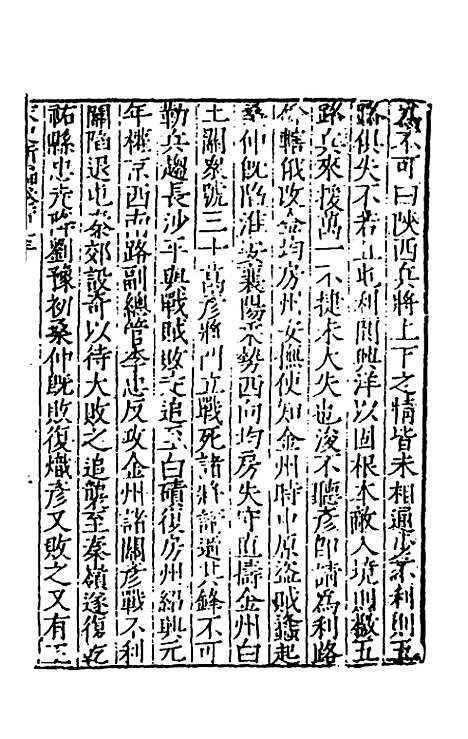 為不可曰陝西兵將上下之情皆未相通少不利則五
路俱失不若且屯利閬興洋以固根本敵入境則檄五
路兵來援萬一不捷未大失也浚不聽彥即請為利路
鈐轄俄改金均房州安撫使知金州時中原盜賊蠭起
桑仲既陷淮安襄陽乘勢西向均房失守直擣金州白
土關衆號三十萬彥將門立戰死諸將請避其鋒不可
勒兵趨長沙平與戰賊敗走追至白磧復房州紹興元
年權京西南路副總管李忠反攻金州諸關彥戰不利
關陷退屯秦郊設奇以待大敗之追襲至秦嶺遂復乾
祐縣忠走降劉豫初桑仲既敗復熾彥又敗之又有王